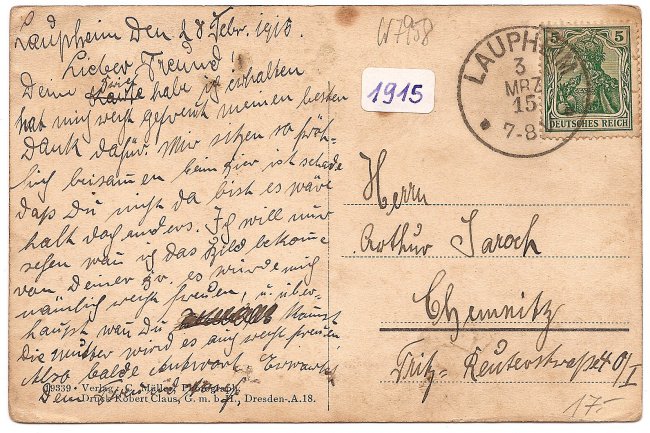 Laupheim den 28 Febr. 1915.
Lieber Freund!
Deine Karte habe ich erhalten
hat mich recht gefreut meinen besten
Dank dafür. Wir sitzen so fröh-
lich beisammen beim Bier ist schade
daß Du nicht da bist es wäre
halt doch anders. Ich will nur
sehen wan ich das Bild bekome
von Deiner es würde mich
nämlich recht freuen, u. über-
haupt wan Du kommst
die Mutter wird es auch recht freuen
Also balde Antwort Erwartet
Dein Freund
19339 • Verlag: C. Müller, Photograph.
Druck Robert Claus, G. m. b. H., Dresden-A.18.
1915
LAUPHEIM
3
MRZ
15
7-8
5 5
DEUTSCHES REICH
Herrn
Arthur Jaroch
Chemnitz
Fritz-Reuterstraße 40/I
17.-